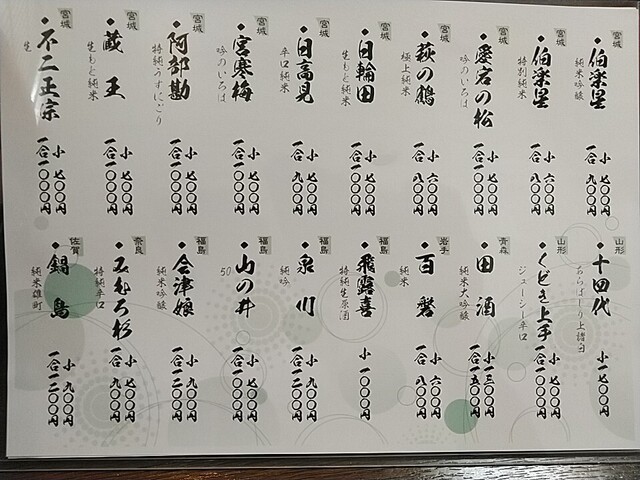 宮城
伯楽星
純米吟醸
小 七〇〇円
一合 九〇〇円
宮城
伯楽星
特別純米
小 六〇〇円
一合 八〇〇円
宮城
愛宕の松
吟のいろは
小 七〇〇円
一合 一〇〇〇円
宮城
萩の鶴
極上純米
小 六〇〇円
一合 八〇〇円
宮城
日輪田
生もと純米
小 七〇〇円
一合 九〇〇円
宮城
日高見
辛口純米
小 七〇〇円
一合 九〇〇円
宮城
宮寒梅
吟のいろは
小 七〇〇円
一合 一〇〇〇円
宮城
阿部勘
特純うすにごり
小 七〇〇円
一合 一〇〇〇円
宮城
蔵王
生もと純米
小 七〇〇円
一合 一〇〇〇円
宮城
不二正宗
生
小 七〇〇円
一合 一〇〇〇円
山形
十四代
あらばしり上諸白
小 一七〇〇円
山形
くどき上手
ジューシー辛口
小 七〇〇円
一合 一〇〇〇円
青森
田酒
純米大吟醸
小 一三〇〇円
一合 一五〇〇円
岩手
百磐
純米
小 六〇〇円
一合 八〇〇円
福島
飛露喜
特純生原酒
小 一〇〇〇円
福島
泉川
純吟
小 九〇〇円
一合 一二〇〇円
福島
山の井
50
小 七〇〇円
一合 一〇〇〇円
福島
会津娘
純米吟醸
小 九〇〇円
一合 一二〇〇円
奈良
みむろ杉
特純辛口
小 七〇〇円
一合 九〇〇円
佐賀
鍋島
純米雄町
小 九〇〇円
一合 一二〇〇円